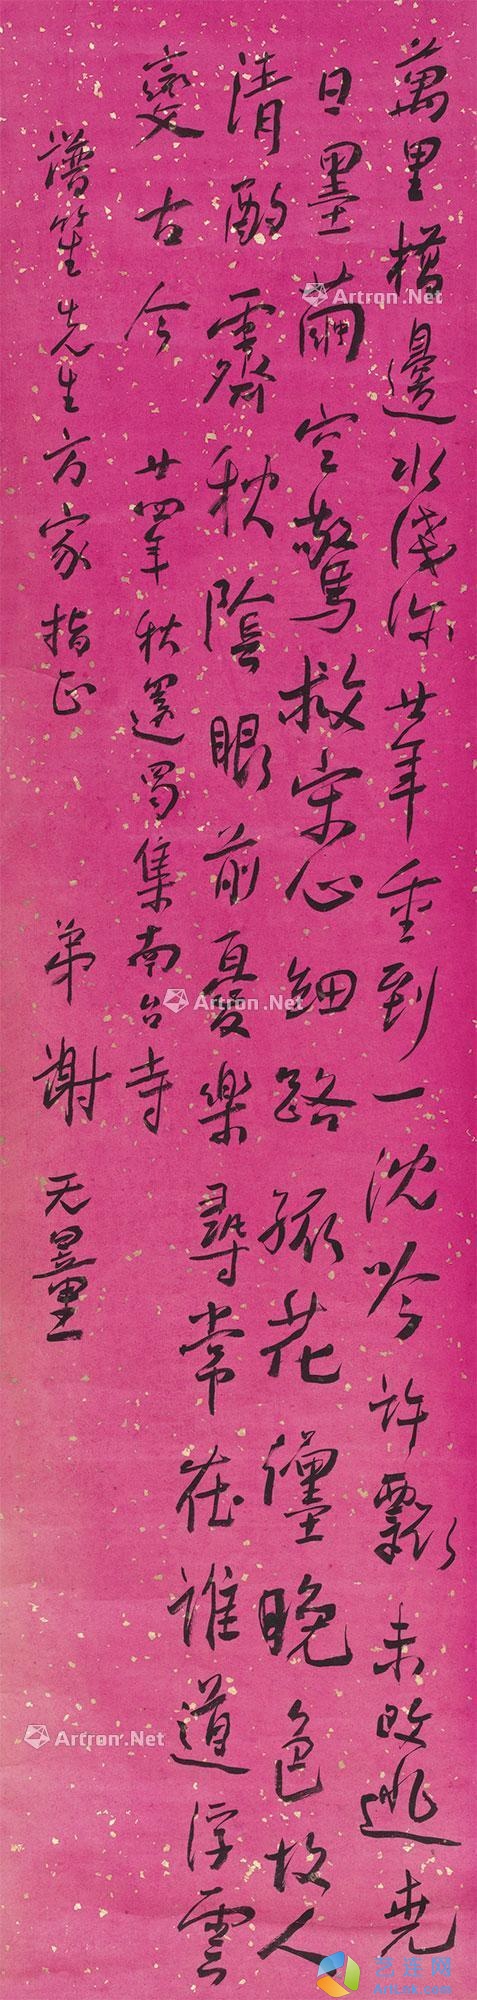 萬里橋邊水淺深廿年重到一沈吟許瓢未改逃堯
日墨繭空驚救宋心細路孤花僵晚色故人
清酌霽秋陰眼前憂樂尋常在誰道浮雲
變古今 廿四年秋還蜀集南台寺
譜笙先生方家指正 弟謝无量
Artron.Net
Artron.Net
Artron.Net
艺连网
ArtLnk.com